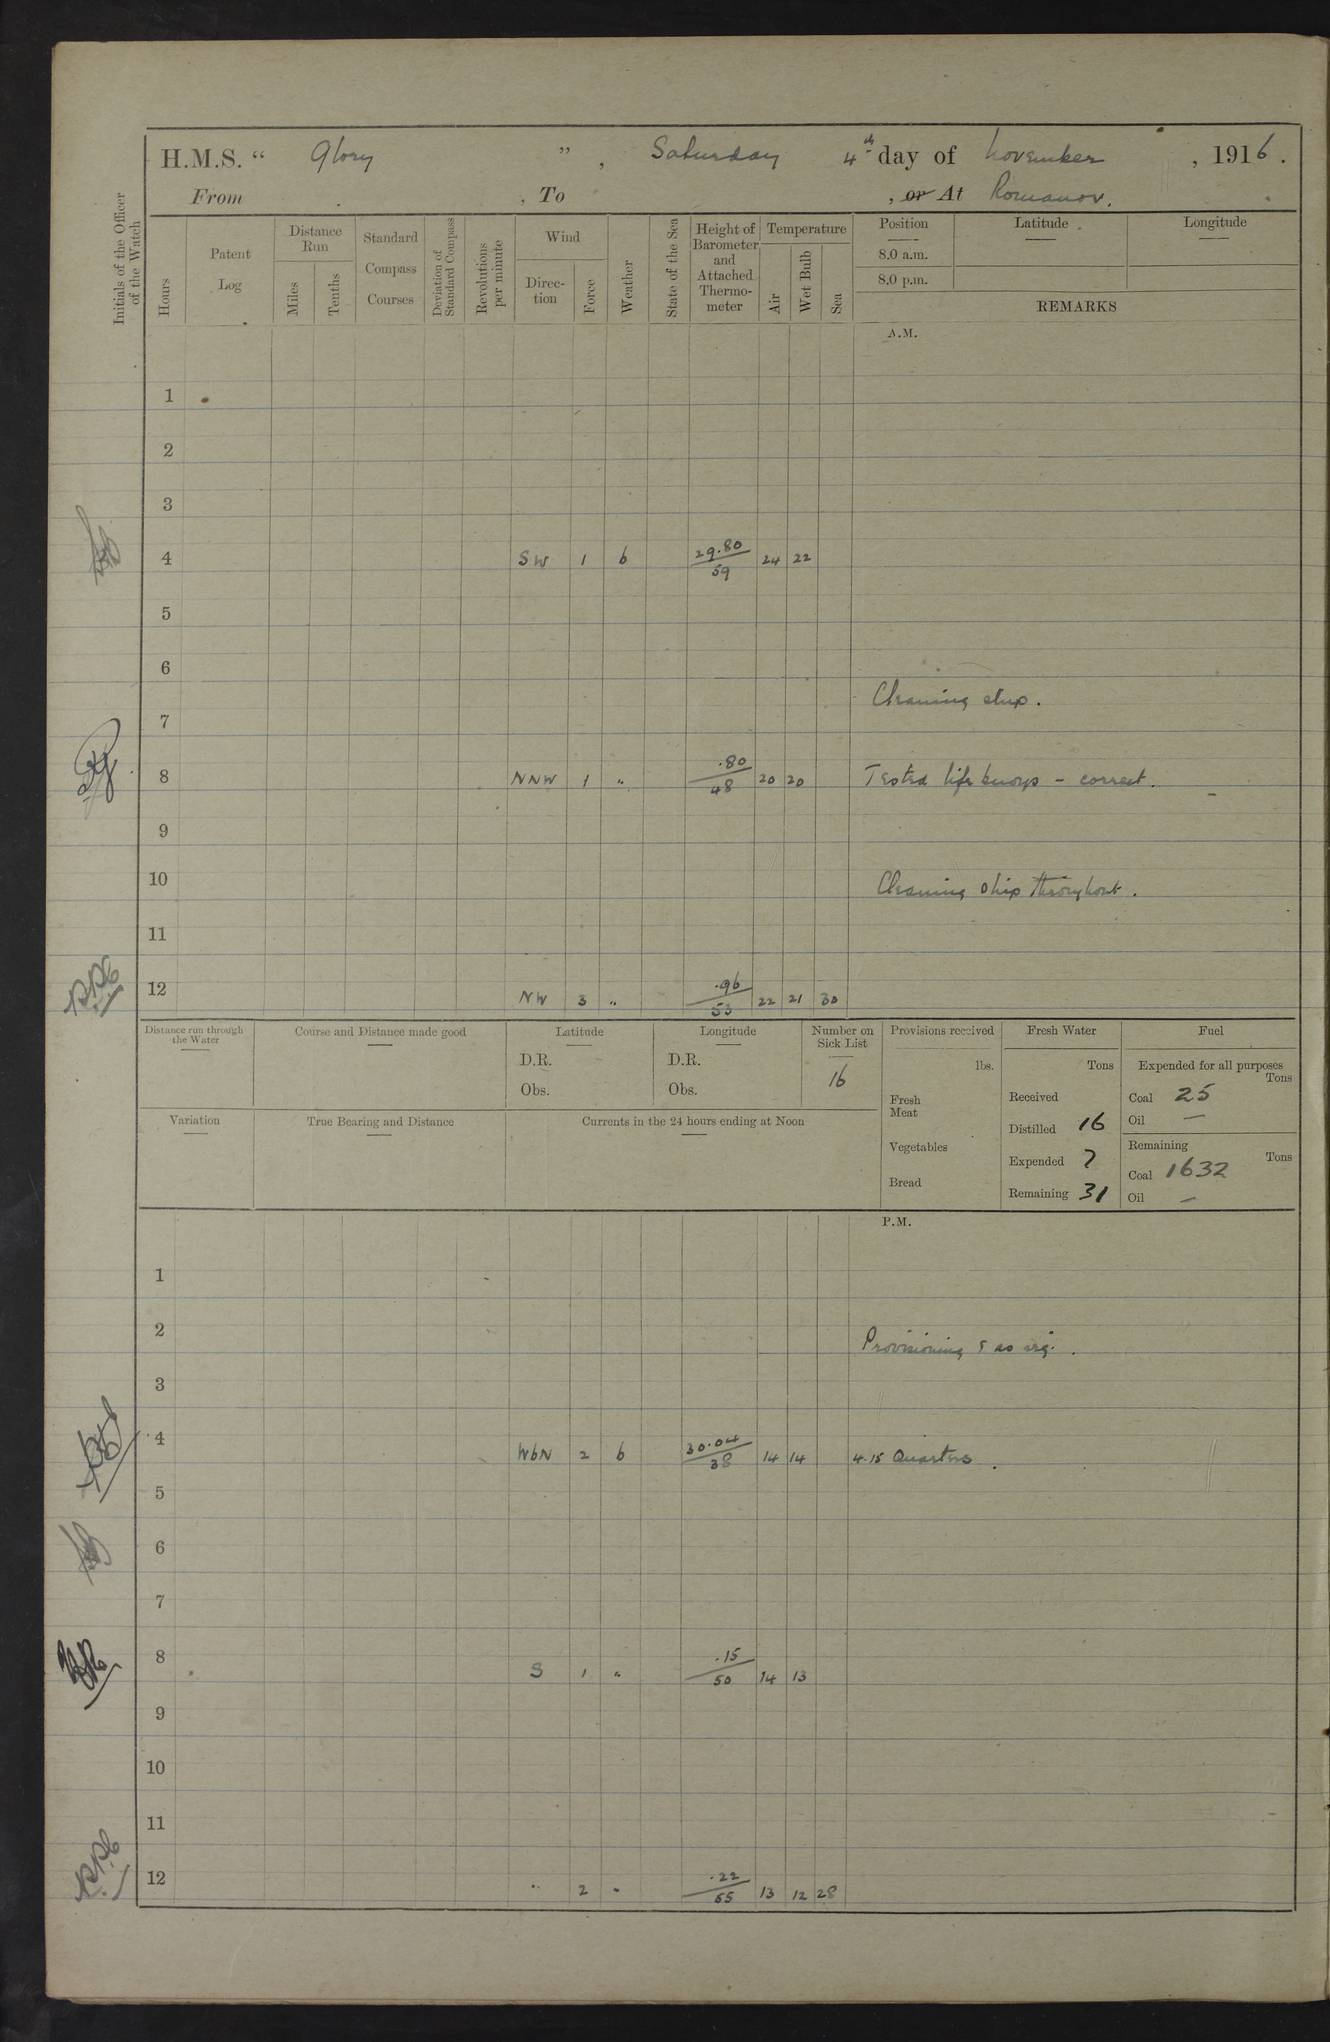 H.M.S. “ Glory ” , Saturday 4th day of November , 1916 .
From , To , or At Romanov.
Initials of the Officer of the Watch
Hours
Patent Log
Distance Run
Miles
Tenths
Standard Compass Courses
Deviation of Standard Compass
Revolutions per minute
Wind
Direction
Force
Weather
State of the Sea
Height of Barometer and Attached Thermometer
Temperature
Air
Wet Bulb
Sea
Position Latitude Longitude
8.0 a.m.
8.0 p.m.
REMARKS
A.M.
1
2
3
4 SW 1 b 29.80/59 24 22
5
6
Cleaning ship.
7
8 NNW 1 " .80/48 20 20 Tested life buoys - correct.
9
10 Cleaning ship throughout.
11
12 NW 3 " .96/53 22 21 30
Distance run through the Water
Course and Distance made good
Latitude
D.R.
Obs.
Longitude
D.R.
Obs.
Number on Sick List
16
Provisions received
lbs.
Fresh Meat
Vegetables
Bread
Fresh Water
Tons
Received
Distilled 16
Expended 7
Remaining 31
Fuel
Expended for all purposes
Tons
Coal 25
Oil —
Remaining
Tons
Coal 1632
Oil —
Variation
True Bearing and Distance
Currents in the 24 hours ending at Noon
P.M.
1
2 Provisioning & as req.
3
4 WbN 2 b 30.04/38 14 14 4.15 Quarters.
5
6
7
8 S 1 " .15/50 14 13
9
10
11
12 " 2 " .22/55 13 12 28